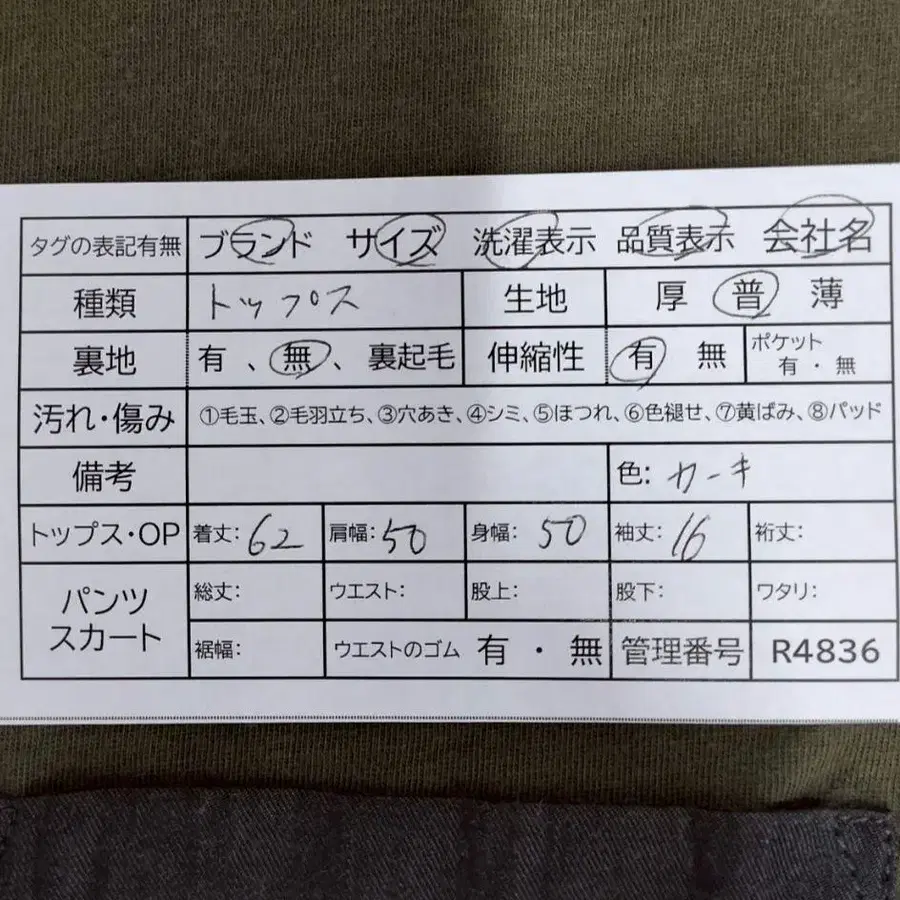 タグの表記有無 ブランド サイズ 洗濯表示 品質表示 会社名
種類 トップス 生地 厚 普 薄
裏地 有、無、裏起毛 伸縮性 有 無 ポケット 有・無
汚れ・傷み ①毛玉、②毛羽立ち、③穴あき、④シミ、⑤ほつれ、⑥色褪せ、⑦黄ばみ、⑧パッド
備考 色: カーキ
トップス・OP 着丈: 62 肩幅: 50 身幅: 50 袖丈: 16 裄丈:
パンツ スカート 総丈: ウエスト: 股上: 股下: ワタリ:
裾幅: ウエストのゴム 有・無 管理番号 R4836